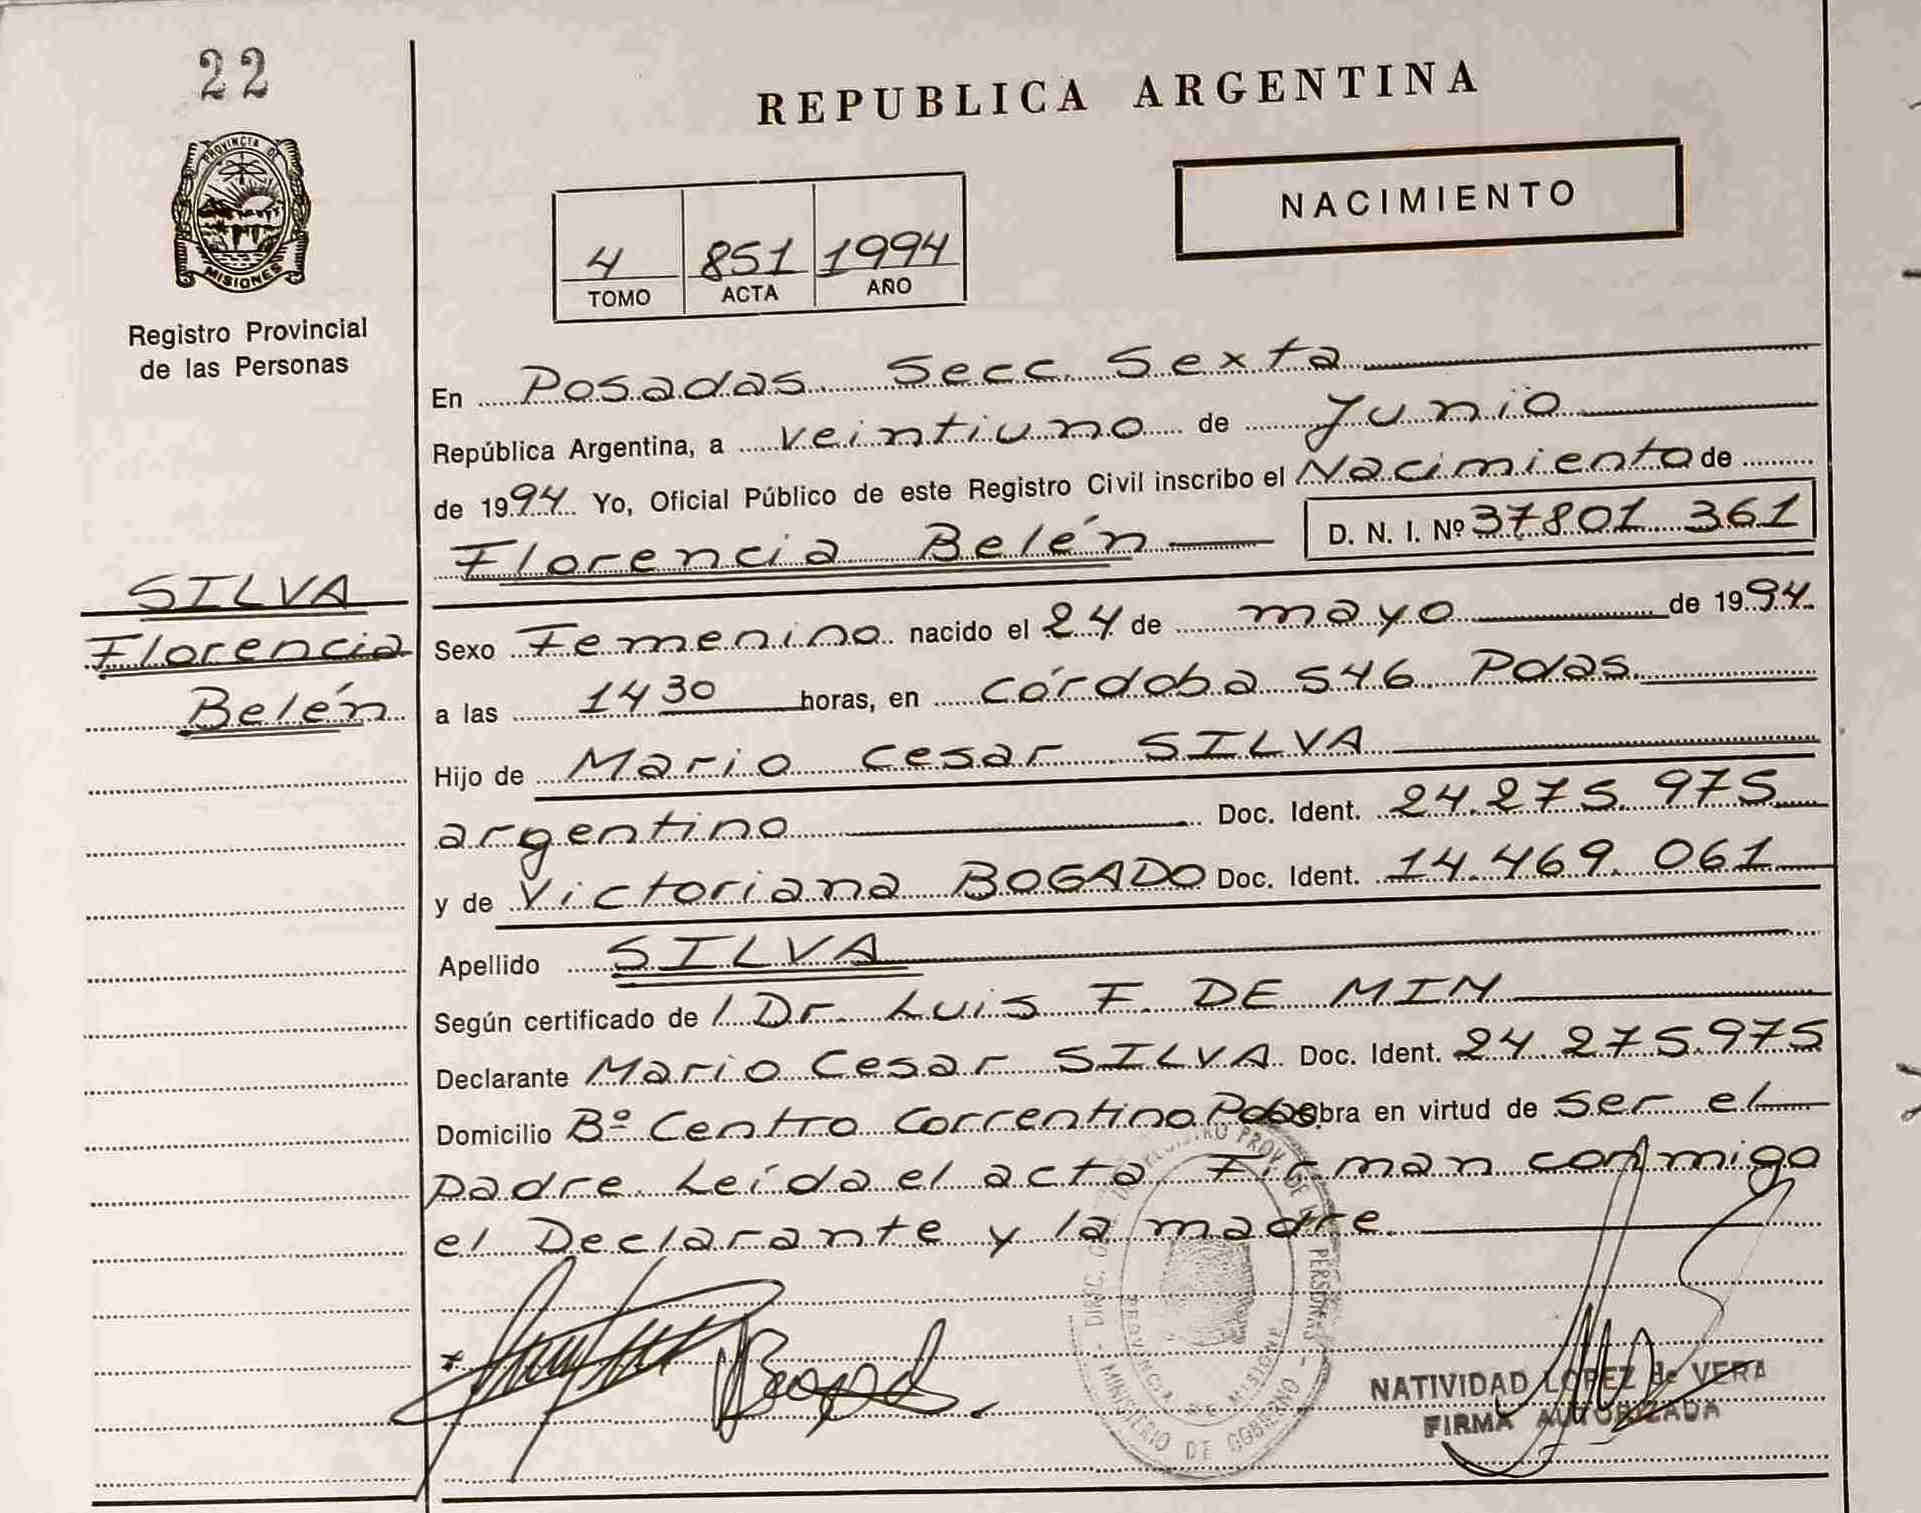 22
PROVINCIA DE
MISIONES
Registro Provincial
de las Personas
SILVA
Florencia
Belén
REPUBLICA ARGENTINA
NACIMIENTO
4 851 1994
TOMO ACTA AÑO
En Posadas Secc. Sexta
República Argentina, a veintiuno de Junio
de 1994 Yo, Oficial Público de este Registro Civil inscribo el Nacimiento de
Florencia Belén D. N. I. Nº 37801 361
Sexo Femenino nacido el 24 de mayo de 1994
a las 14 30 horas, en Córdoba 546 Pdas.
Hijo de Mario Cesar SILVA
argentino Doc. Ident. 24.275.975
y de Victoriana BOGADO Doc. Ident. 14.469.061
Apellido SILVA
Según certificado de l Dr. Luis F. DE MIN
Declarante Mario Cesar SILVA Doc. Ident. 24.275.975
Domicilio Bº Centro Correntino Pdas obra en virtud de ser el
padre. Leída el acta Firman conmigo
el Declarante y la madre.
PROVINCIA DE MISIONES
MINISTERIO DE GOBIERNO
NATIVIDAD LOPEZ de VERA
FIRMA AUTORIZADA